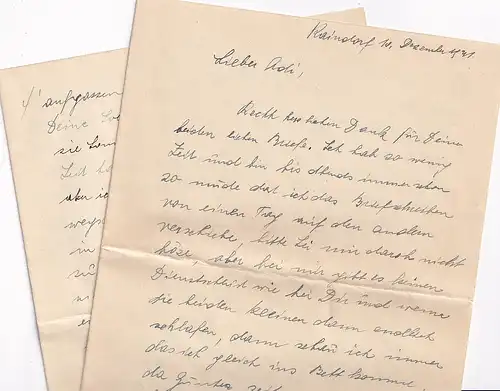 Raindorf 10. Dezember 1941.
Lieber Adi,
Recht herzlichen Dank für Deine
beiden lieben Briefe. Ich hab so wenig
Zeit und bin bis abends immer schon
so müde das ich das Briefschreiben
von einen Tag auf den andern
verschiebe, bitte sei mir darob nicht
böse, aber bei mir gibt es keinen
Dienstscheid wie bei Dir und wenn
die beiden kleinen dann endlich
schlafen, dann sehen ich immer
das ich gleich ins Bett komme
da
aufgassen
Deine
sie
Zeit
aber ich
in